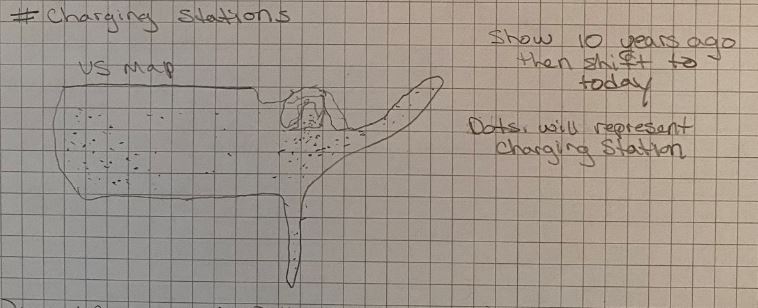 # Charging Stations
US Map
Show 10 years ago
then shift to
today
Dots will represent
Charging Station